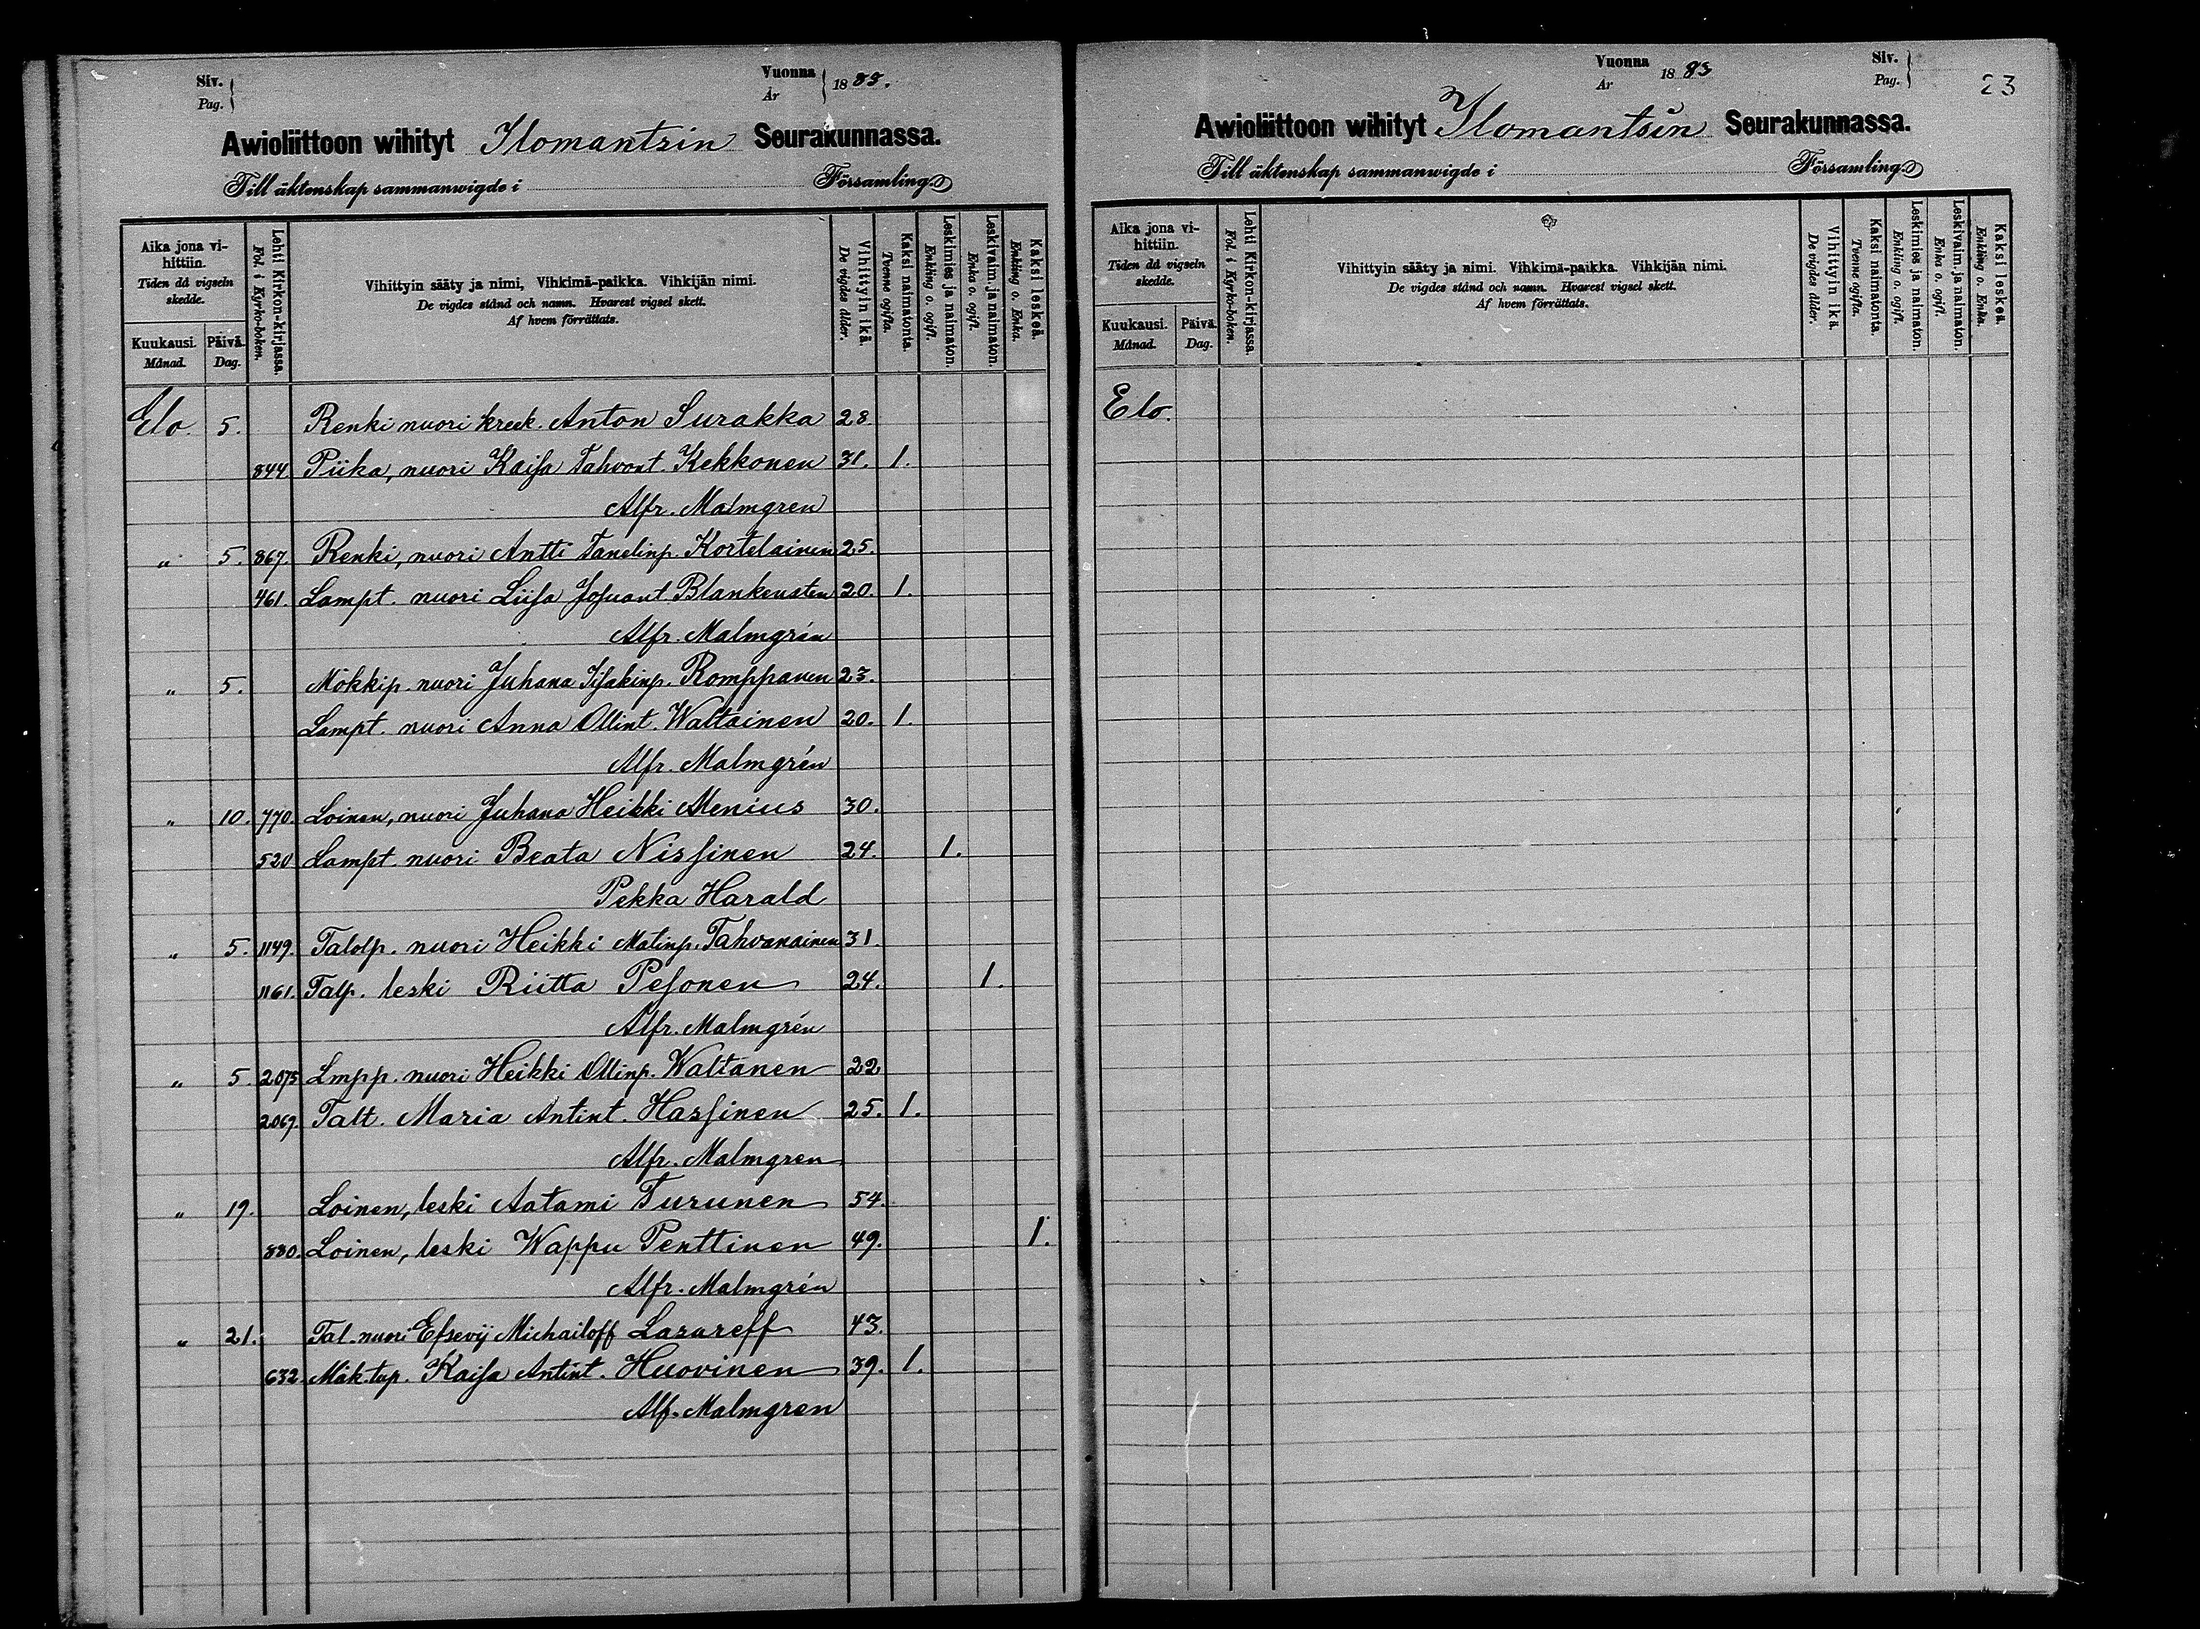 Siv. Pag.
Vuonna År 1883.
Awioliittoon wihityt Ilomantsin Seurakunnassa.
Till äktenskap sammanwigde i Församling.
Aika jona vihittiin. Tiden då vigseln skedde.
Kuukausi. Månad. Päivä. Dag.
Lehti Kirkon-kirjassa. Fol. i Kyrko-boken.
Vihittyin sääty ja nimi, Vihkimä-paikka. Vihkijän nimi.
De vigdes stånd och namn. Hvarest vigsel skett.
Af hvem förrättats.
Vihittyin ikä. De vigdes ålder.
Kaksi naimatonta. Tvenne ogifta.
Leskimies ja naimaton. Enkling o. ogift.
Leskivaim. ja naimaton. Enka o. ogift.
Kaksi leskeä. Enkling o. Enka.
Elo. 5. Renki nuori kreek. Anton Surakka 28
844 Piika, nuori Kaisa Tahvont. Kekkonen 31. 1.
Alfr. Malmgren
" 5. 867. Renki, nuori Antti Tanelinp. Kortelainen 25.
461. Lampt. nuori Liisa Josuant Blankensten 20. 1.
Alfr. Malmgrén
" 5. Mökkip. nuori Juhana Iisakinp. Romppanen 23.
Lampt. nuori Anna Ollint. Waltainen 20. 1.
Alfr. Malmgrén
" 10. 770. Loinen, nuori Juhana Heikki Alenius 30.
520 Lampt. nuori Beata Nissinen 24. 1.
Pekka Harald
" 5. 1149. Talolp. nuori Heikki Matinp. Tahvanainen 31.
1161. Talp. leski Riitta Pesonen 24. 1.
Alfr. Malmgrén
" 5. 2075 Lmpp. nuori Heikki Ollinp. Waltanen 22
2069. Talt. Maria Antint. Hassinen 25. 1.
Alfr. Malmgren
" 19. Loinen, leski Aatami Turunen 54.
880. Loinen, leski Wappu Penttinen 49. 1.
Alfr. Malmgrén
" 21. Tal. nuori Efsevij Michailoff Lasareff 43.
632. Mäk.tyt. Kaisa Antint. Huovinen 39. 1.
Alf. Malmgren
Vuonna År 1883
Siv. Pag.
23
Awioliittoon wihityt Ilomantsin Seurakunnassa.
Till äktenskap sammanwigde i Församling.
Aika jona vihittiin. Tiden då vigseln skedde.
Kuukausi. Månad. Päivä. Dag.
Lehti Kirkon-kirjassa. Fol. i Kyrko-boken.
Vihittyin sääty ja nimi. Vihkimä-paikka. Vihkijän nimi.
De vigdes stånd och namn. Hvarest vigsel skett.
Af hvem förrättats.
Vihittyin ikä. De vigdes ålder.
Kaksi naimatonta. Tvenne ogifta.
Leskimies ja naimaton. Enkling o. ogift.
Leskivaim. ja naimaton. Enka o. ogift.
Kaksi leskeä. Enkling o. Enka.
Elo.